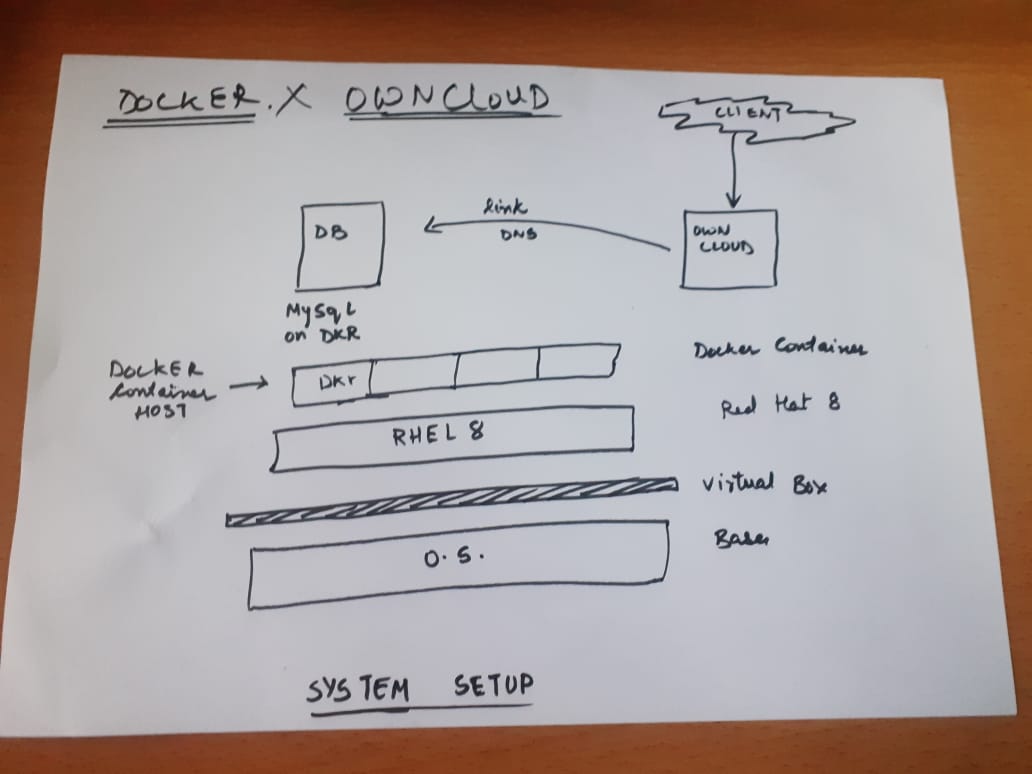 DOCKER. X OWNCLOUD
CLIENT
DB
link
DNS
OWN
CLOUD
MySqL
on DKR
DOCKER
Container
HOST
DKr
Docker Container
RHEL 8
Red Hat 8
Virtual Box
O.S.
Base
SYSTEM SETUP